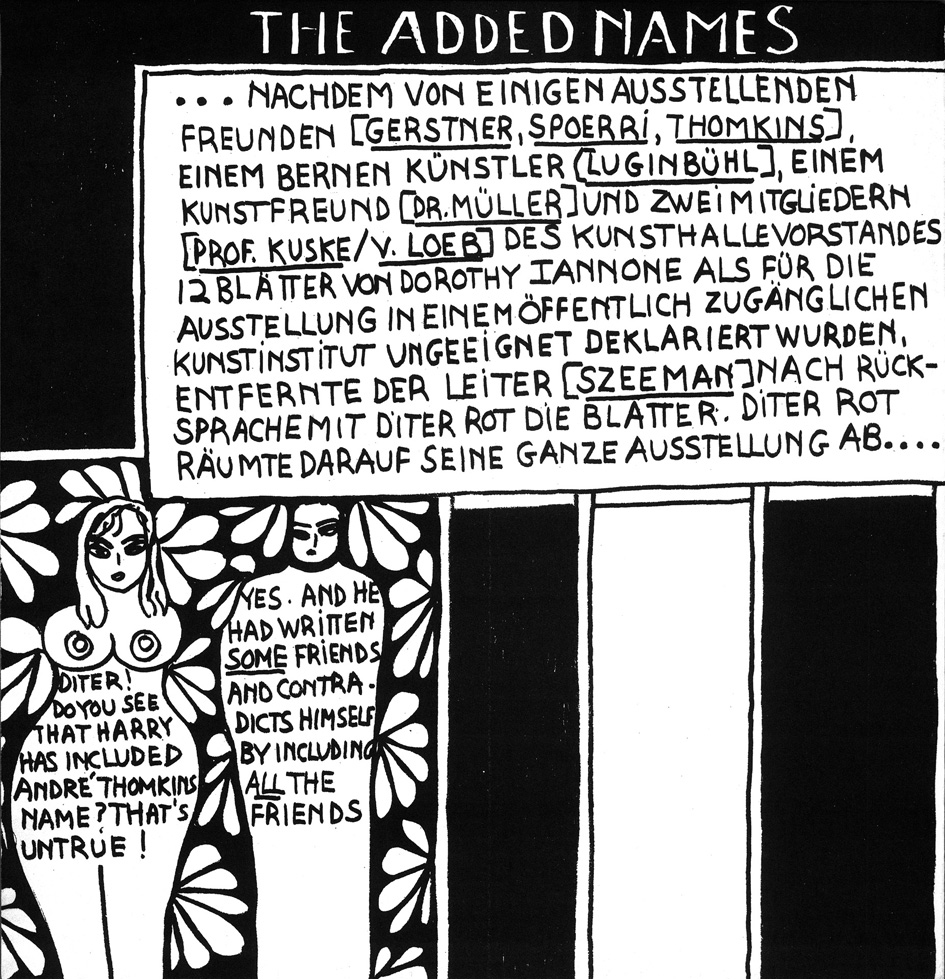 THE ADDED NAMES
... NACHDEM VON EINIGEN AUSSTELLENDEN
FREUNDEN [GERSTNER, SPOERRI, THOMKINS],
EINEM BERNEN KÜNSTLER [LUGINBÜHL], EINEM
KUNSTFREUND [DR. MÜLLER] UND ZWEI MITGLIEDERN
[PROF. KUSKE/V. LOEB] DES KUNSTHALLEVORSTANDES
12 BLÄTTER VON DOROTHY IANNONE ALS FÜR DIE
AUSSTELLUNG IN EINEM ÖFFENTLICH ZUGÄNGLICHEN
KUNSTINSTITUT UNGEEIGNET DEKLARIERT WURDEN,
ENTFERNTE DER LEITER [SZEEMAN] NACH RÜCK-
SPRACHE MIT DITER ROT DIE BLÄTTER. DITER ROT
RÄUMTE DARAUF SEINE GANZE AUSSTELLUNG AB....
DITER!
DO YOU SEE
THAT HARRY
HAS INCLUDED
ANDRÉ THOMKINS
NAME? THAT'S
UNTRUE!
YES. AND HE
HAD WRITTEN
SOME FRIENDS
AND CONTRA-
DICTS HIMSELF
BY INCLUDING
ALL THE
FRIENDS